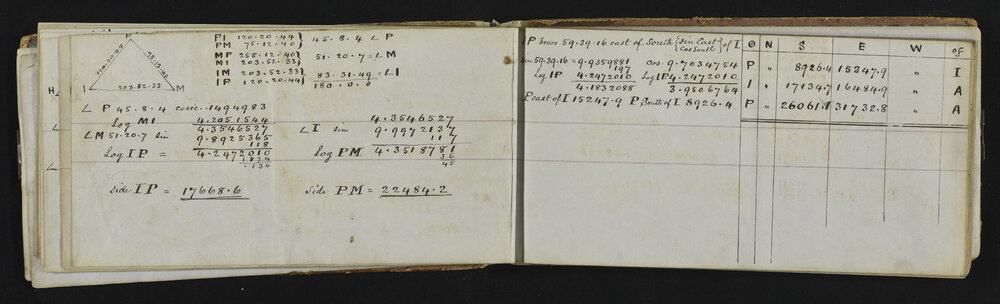 P
120.20.44
75.12.40
I 203.52.33 M
PI 120.20.44}
PM 75.12.40} 45.8.4 ∠ P
MP 255.12.40}
MI 203.52.33} 51.20.7 = ∠ M
IM 203.52.33}
IP 120.20.44} 83.31.49 = ∠ I
180.0.0
H
∠ P 45.8.4 cosec .1494983
Log MI 4.2051544
4.3546527
∠ M 51.20.7 sin 9.8925365
118
Log IP = 4.2472010
1874
.136
side IP = 17668.6
4.3546527
∠ I sin 9.9972137
117
Log PM 4.3518781
36
45
side PM = 22484.2
IP bears 59.39.16 east of South {Sin East} {Cos South} of I
sin 59.39.16 = 9.9359881 cos 9.7034754
197
Log IP 4.2472010 Log IP 4.2472010
4.1832088 3.9506764
P east of I 15247.9 P South of I 8926.4
N S E W of
P " 8926.4 15347.9 " I
I " 17134.7 16484.9 " A
P " 26061.1 31732.8 " A